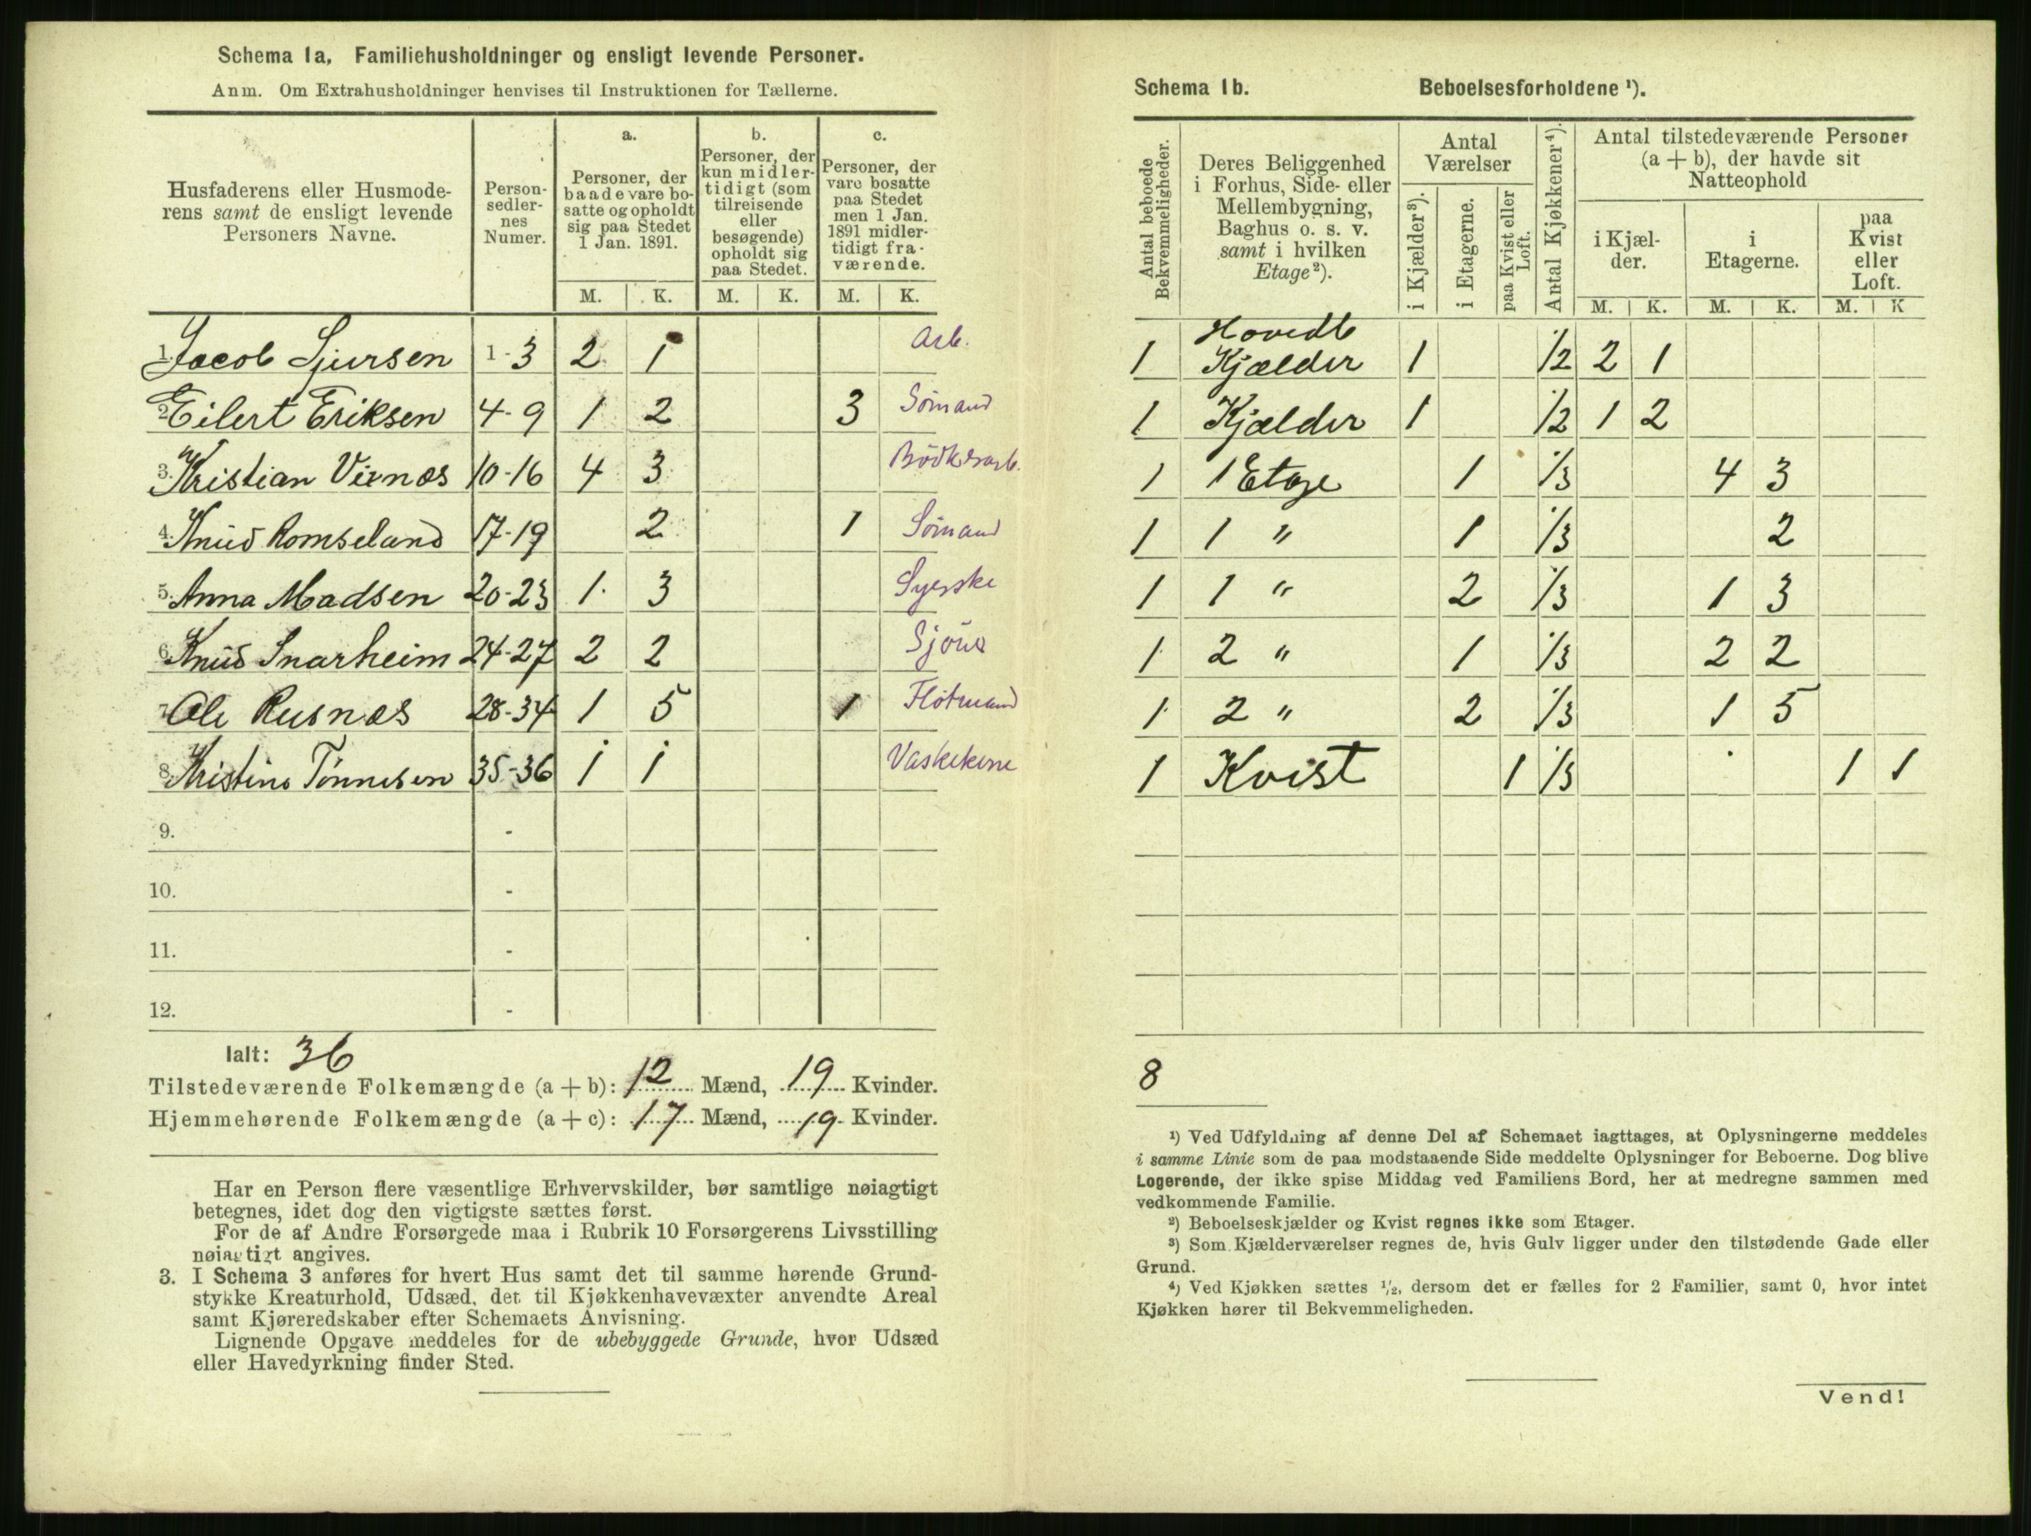 Schema 1a. Familiehusholdninger og ensligt levende Personer.
Anm. Om Extrahusholdninger henvises til Instruktionen for Tællerne.
Husfaderens eller Husmode-
rens samt de ensligt levende
Personers Navne.
Person-
sedler-
nes
Numer.
a.
Personer, der
baade vare bo-
satte og opholdt
sig paa Stedet
1 Jan. 1891.
b.
Personer, der
kun midler-
tidigt (som
tilreisende
eller
besøgende)
opholdt sig
paa Stedet.
c.
Personer, der
vare bosatte
paa Stedet
men 1 Jan.
1891 midler-
tidigt fra-
værende.
M. K. M. K. M. K.
1. Jacob Sjursen 1-3 2 1 Arb.
2. Eilert Eriksen 4-9 1 2 3 Sømand
3. Kristian Virnæs 10-16 4 3 Bødkerarb.
4. Knud Romseland 17-19 2 1 Sømand
5. Anna Madsen 20-23 1 3 Syerske
6. Knud Snarheim 24-27 2 2 Sjøua
7. Ole Rusnæs 28-34 1 5 1 Flotmand
8. Kristine Tønnesen 35-36 1 1 Vaskekone
9. -
10. -
11. -
12. -
Ialt: 36
Tilstedeværende Folkemængde (a + b): 12 Mænd, 19 Kvinder.
Hjemmehørende Folkemængde (a + c): 17 Mænd, 19 Kvinder.
Har en Person flere væsentlige Erhvervskilder, bør samtlige nøiagtigt
betegnes, idet dog den vigtigste sættes først.
For de af Andre Forsørgede maa i Rubrik 10 Forsørgerens Livsstilling
nøiagtigt angives.
3. I Schema 3 anføres for hvert Hus samt det til samme hørende Grund-
stykke Kreaturhold, Udsæd, det til Kjøkkenhavevæxter anvendte Areal
samt Kjøreredskaber efter Schemaets Anvisning.
Lignende Opgave meddeles for de ubebyggede Grunde, hvor Udsæd
eller Havedyrkning finder Sted.
Schema 1b. Beboelsesforholdene ¹).
Antal beboede
Bekvemmeligheder.
Deres Beliggenhed
i Forhus, Side- eller
Mellembygning,
Baghus o. s. v.
samt i hvilken
Etage²).
Antal
Værelser
i Kjælder³).
i Etagerne.
paa Kvist eller
Loft.
Antal Kjøkkener⁴).
Antal tilstedeværende Personer
(a + b), der havde sit
Natteophold
i Kjæl-
der.
i
Etagerne.
paa
Kvist
eller
Loft.
M. K. M. K. M. K
Hovedb
1 Kjælder 1 1/2 2 1
1 Kjælder 1 1/2 1 2
1 1 Etage 1 1/3 4 3
1 1 " 1 1/3 2
1 1 " 2 1/3 1 3
1 2 " 1 1/3 2 2
1 2 " 2 1/3 1 5
1 Kvist 1 1/3 1 1
8
¹) Ved Udfyldning af denne Del af Schemaet iagttages, at Oplysningerne meddeles
i samme Linie som de paa modstaaende Side meddelte Oplysninger for Beboerne. Dog blive
Logerende, der ikke spise Middag ved Familiens Bord, her at medregne sammen med
vedkommende Familie.
²) Beboelseskjælder og Kvist regnes ikke som Etager.
³) Som Kjælderværelser regnes de, hvis Gulv ligger under den tilstødende Gade eller
Grund.
⁴) Ved Kjøkken sættes ¹/₂, dersom det er fælles for 2 Familier, samt 0, hvor intet
Kjøkken hører til Bekvemmeligheden.
Vend!